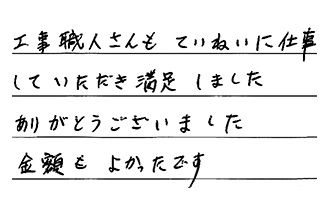 工事職人さんも ていねいに仕事
していただき満足しました
ありがとうございました
金額も よかったです